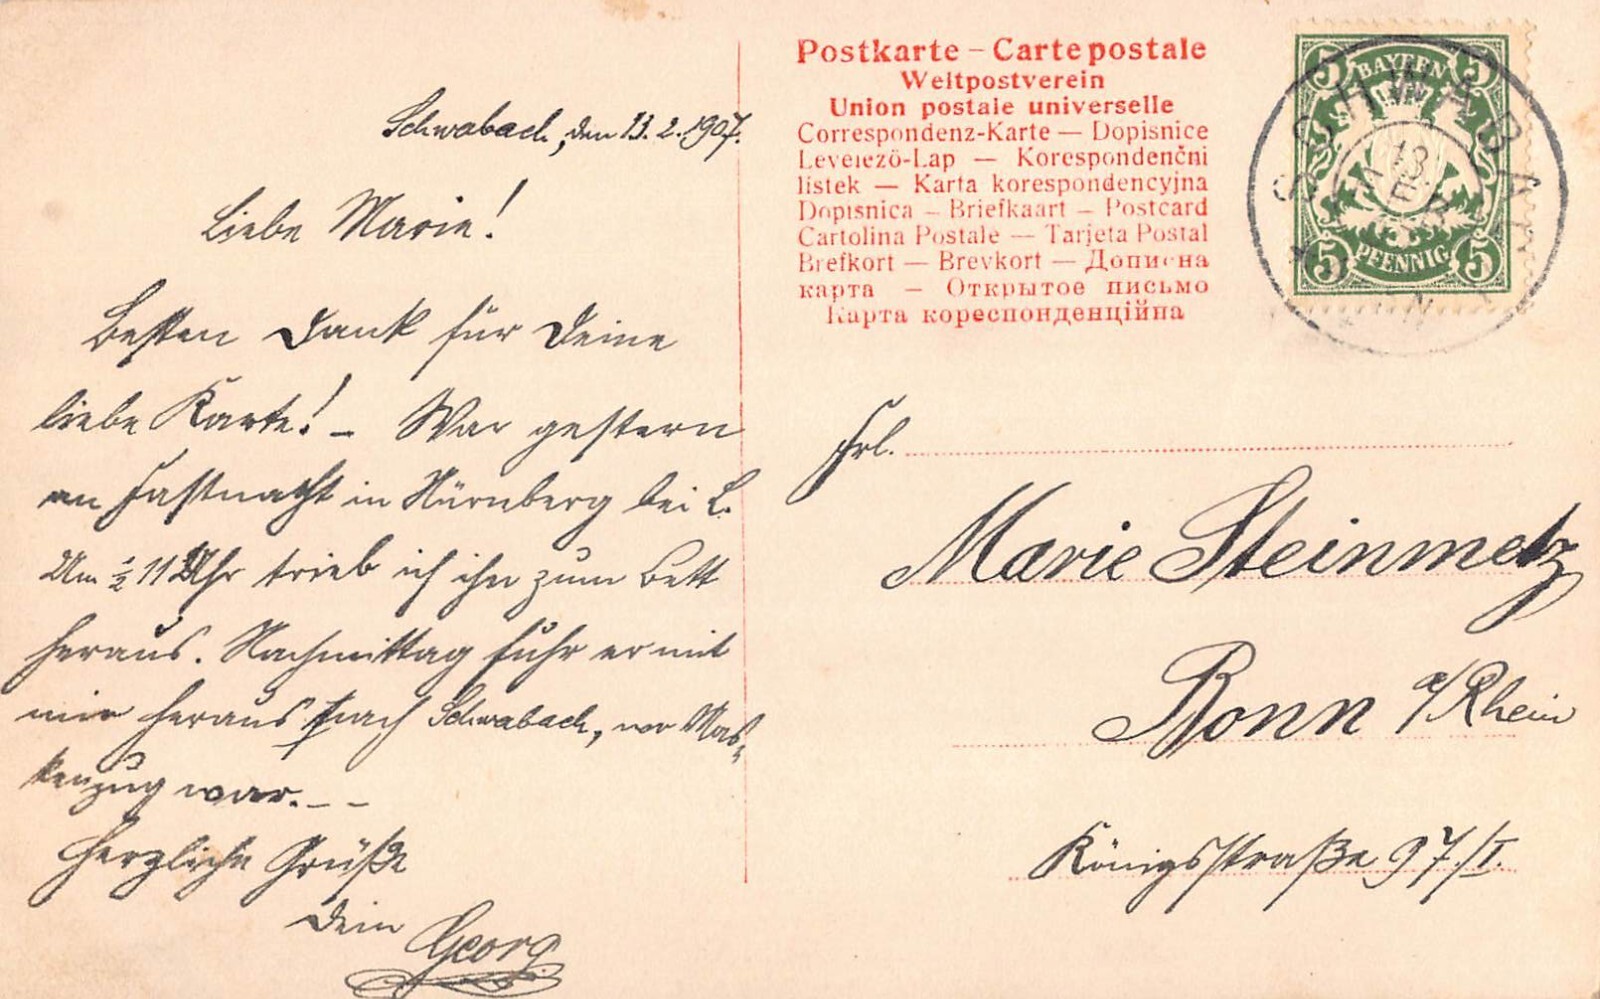 Schwabach, den 13.2.1907.
Liebe Marie!
Besten Dank für Deine
liebe Karte! – War gestern
an Fastnacht in Nürnberg bei L.
Um ½ 11 Uhr trieb ich ihn zum Bett
heraus. Nachmittag fuhr er mit
mir heraus nach Schwabach, wo Mas-
kenzug war. – –
Herzliche Grüße
Dein
Georg
Postkarte – Carte postale
Weltpostverein
Union postale universelle
Correspondenz-Karte — Dopisnice
Levelező-Lap — Korespondenční
listek — Karta korespondencyjna
Dopisnica — Briefkaart — Postcard
Cartolina Postale — Tarjeta Postal
Brefkort — Brevkort — Дописна
карта — Открытое письмо
Карта кореспонденційна
5 BAYERN 5
5 PFENNIG 5
SCHWABACH
13
FEB
Frl.
Marie Steinmetz
Bonn a/Rhein
Königsstraße 97./I.